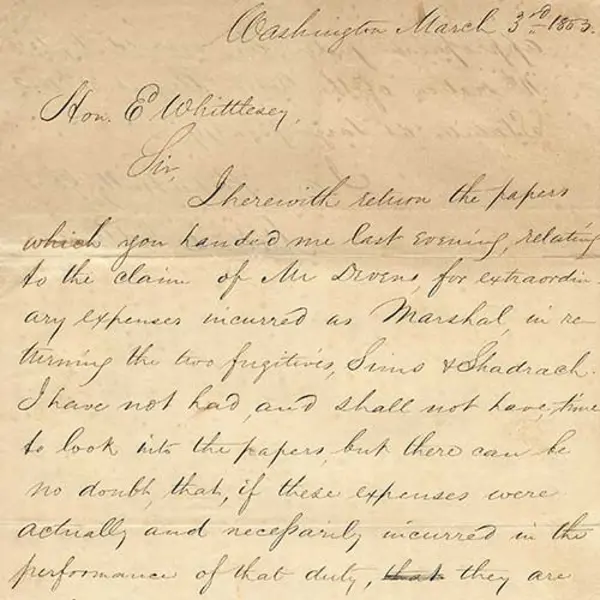 Washington March 3rd 1853.
Hon. Ed Whittlesey,
Sir,
I herewith return the papers
which you handed me last evening, relating
to the claim of Mr Devens, for extraordin-
ary expenses incurred as Marshal, in re-
turning the two fugitives, Sims & Shadrach.
I have not had, and shall not have, time
to look into the papers, but there can be
no doubt, that, if these expenses were
actually and necessarily incurred in the
performance of that duty, that they are